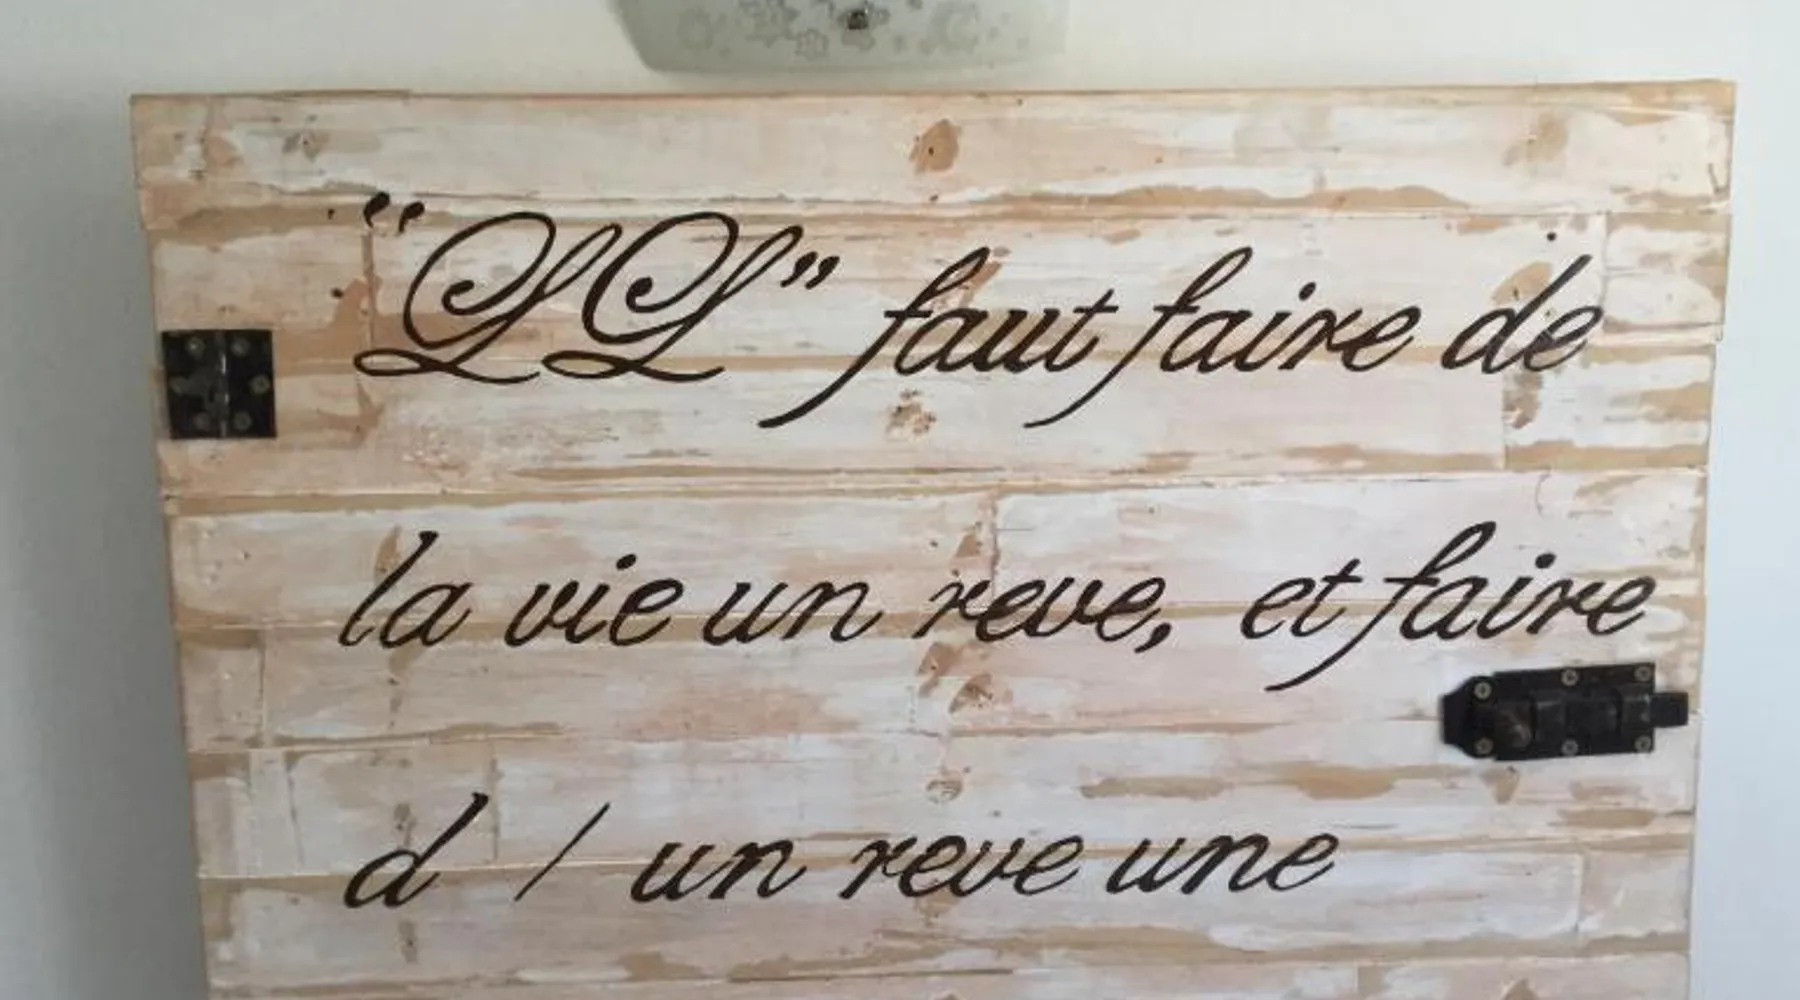 "LL" faut faire de
la vie un reve, et faire
d / un reve une